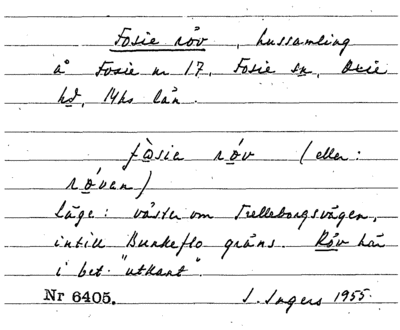 Fosie röv, hussamling
å Fosie nr 17, Fosie sn, Oxie
hd, Mhs län.
fòsie röv (eller:
röven)
Läge: väster om Trelleborgsvägen,
intill Bunkeflo gräns. Röv här
i bet. "utkant".
Nr 6405. I. Ingers 1955.